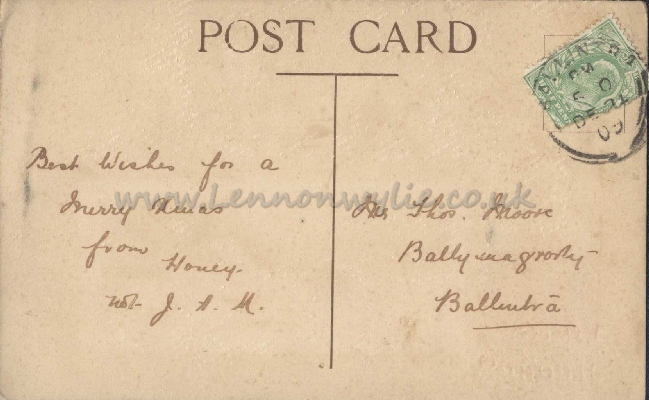 POST CARD
Best Wishes for a
Merry Xmas
from Honey.
not J. A. M.
www.Lennonwylie.co.uk
Thos. Moore
Ballymagrorty
Ballintra
PM
DE 24
09